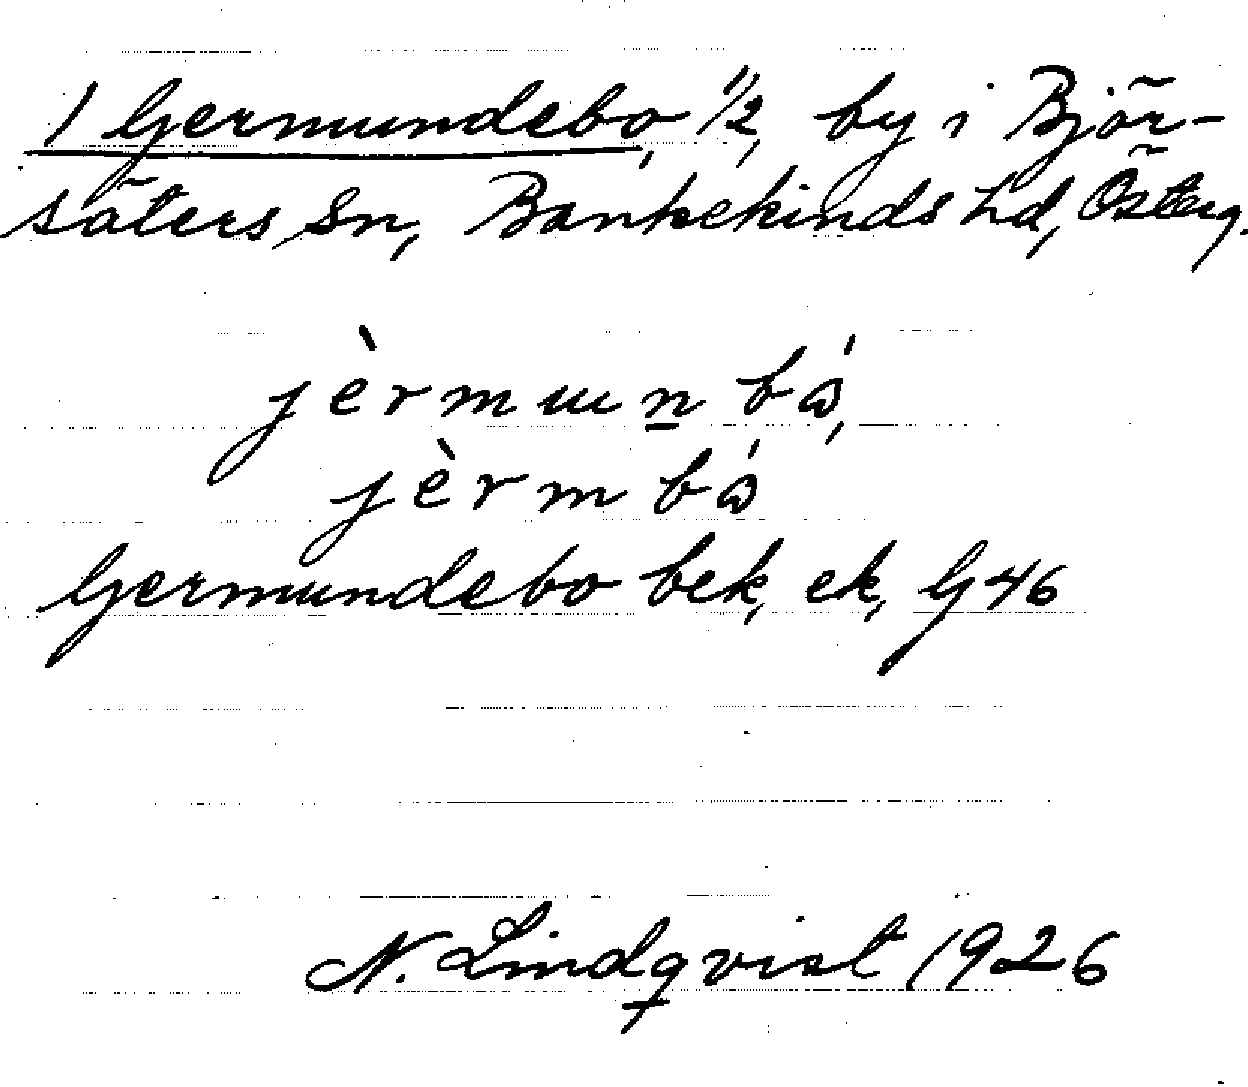 1 Germundebo, 1/2, by i Björ-
säters sn, Bankekinds hd, Österg.
jèrmuun bá,
jèrm bá
Germundebo bek, ek, G 46
N. Lindqvist 1926